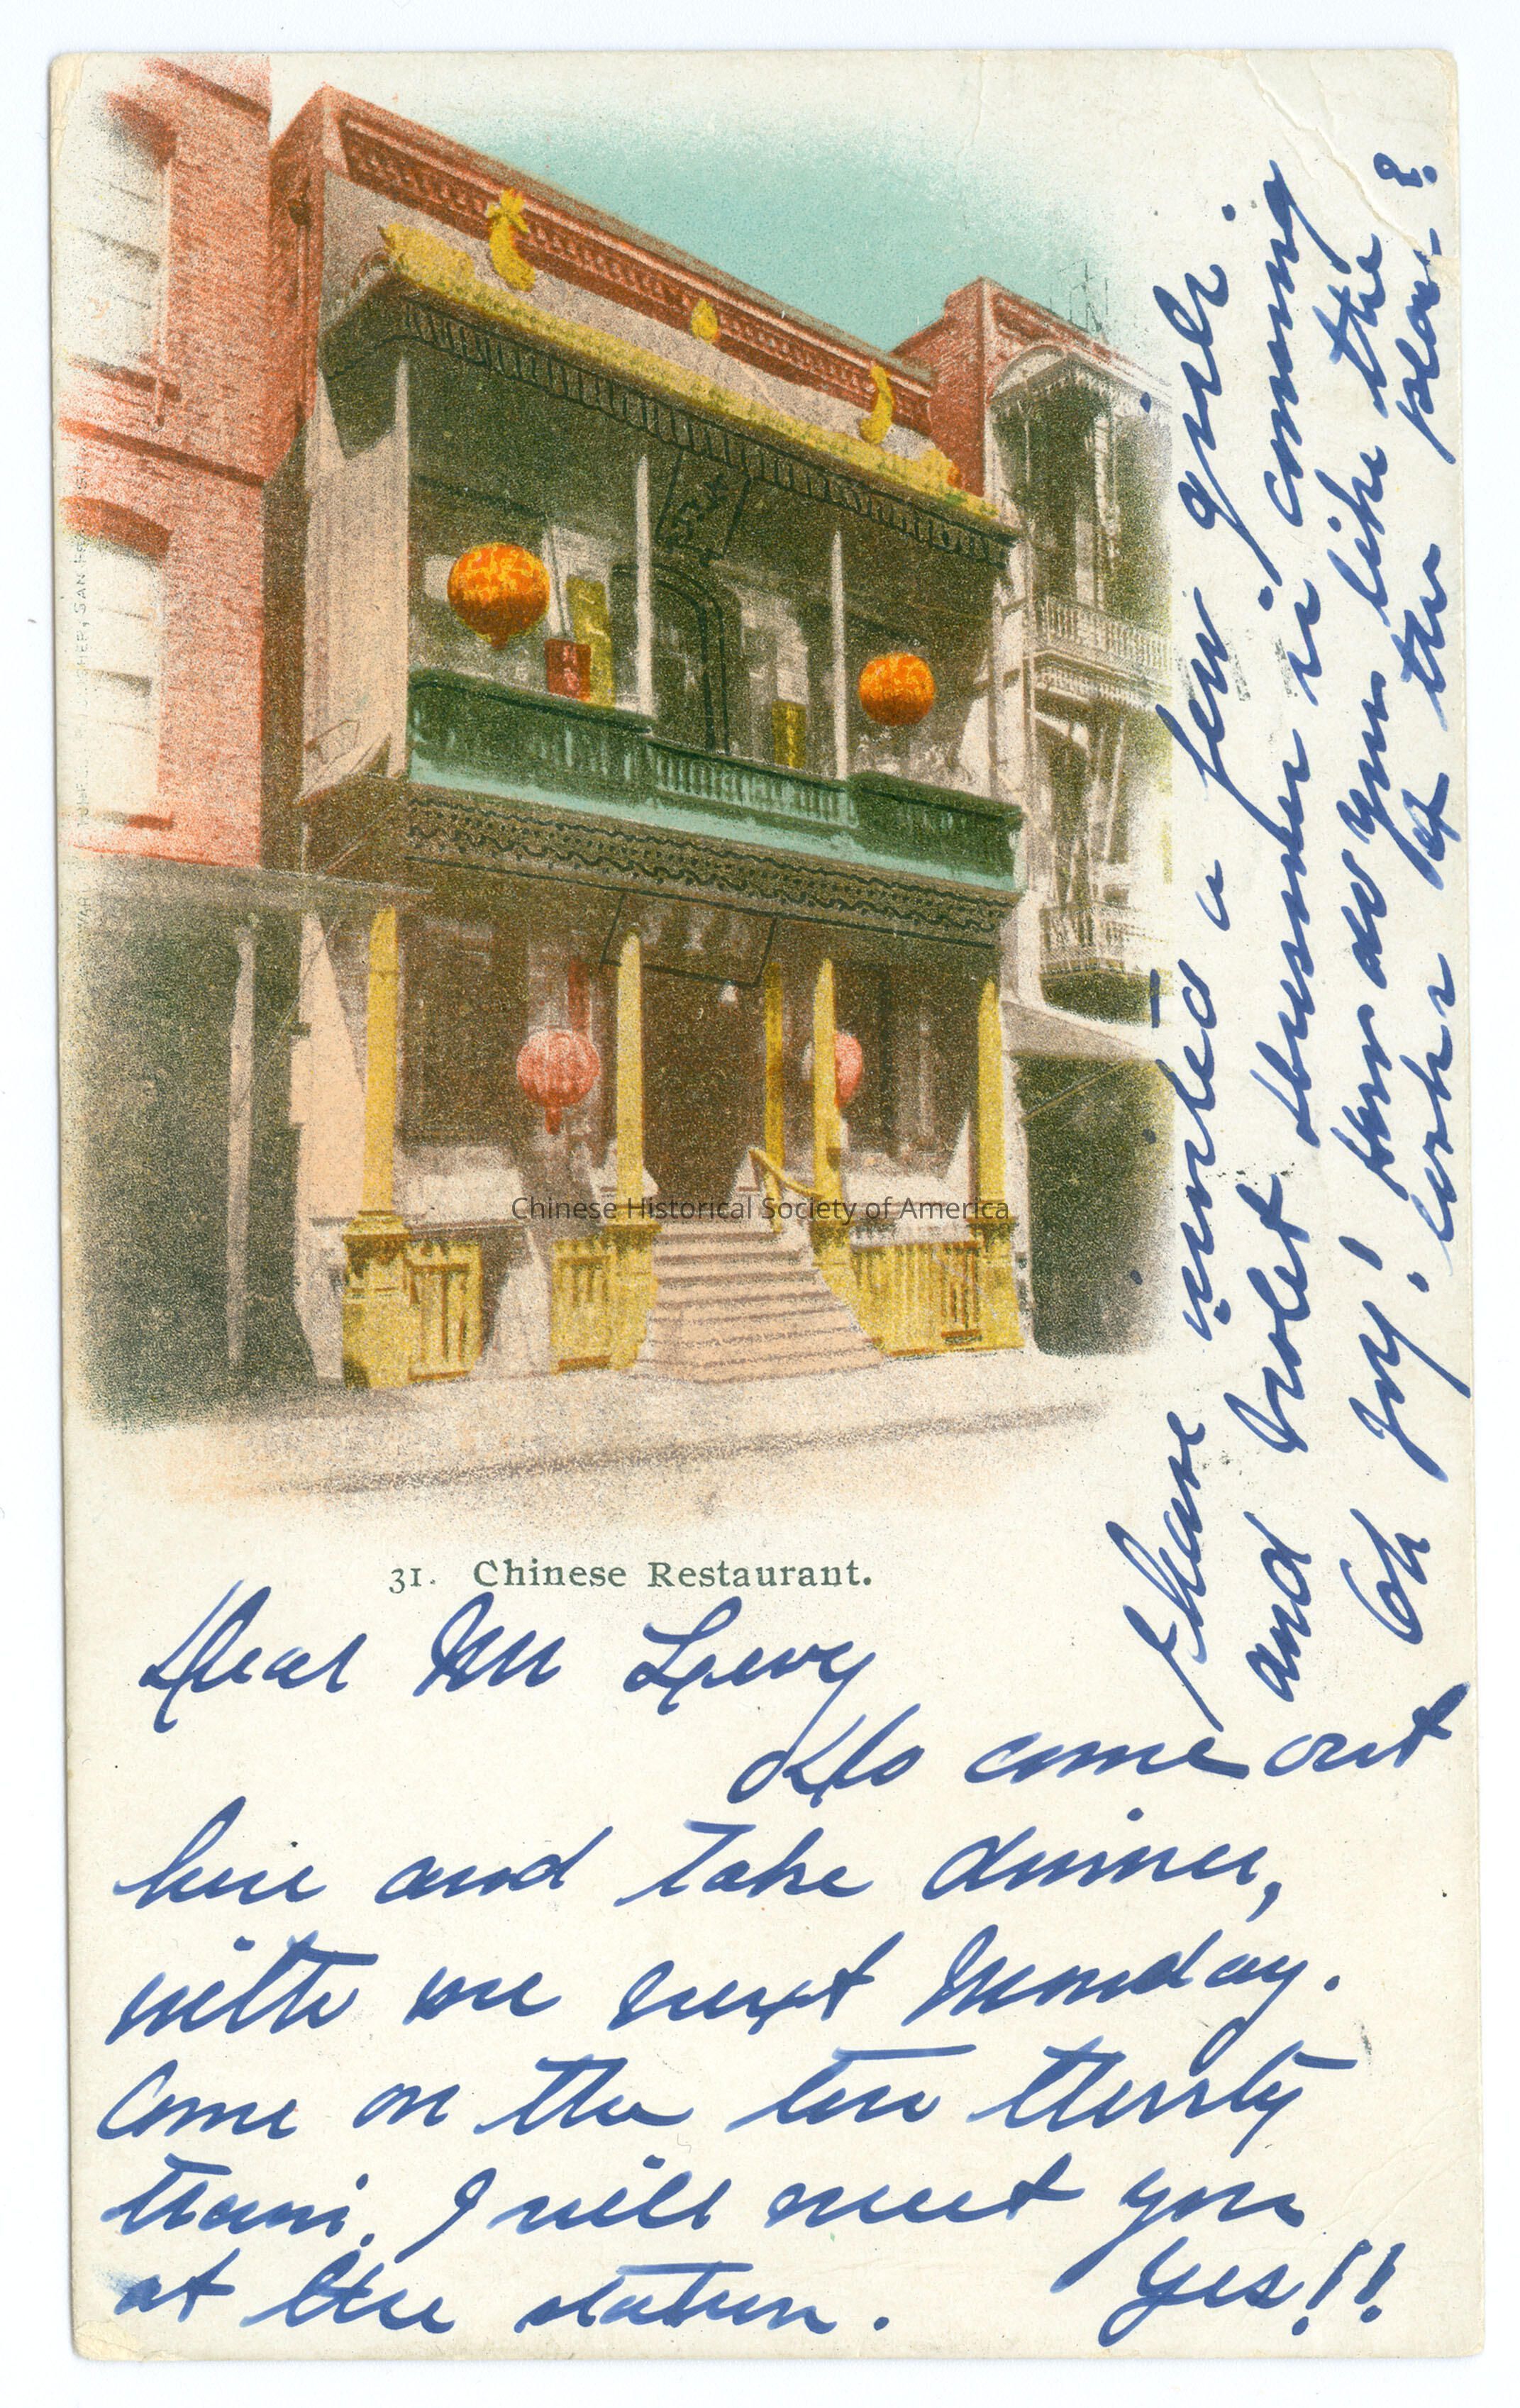 31. Chinese Restaurant.
Dear Mr Levy
Do come out
here and take dinner,
with me next Monday.
Come on the ten thirty
train. I will meet you
at the station. Yes!!
I have invited a few girls.
and Violet is coming
Oh Joy! How do you like the
looks of the place?
Chinese Historical Society of America